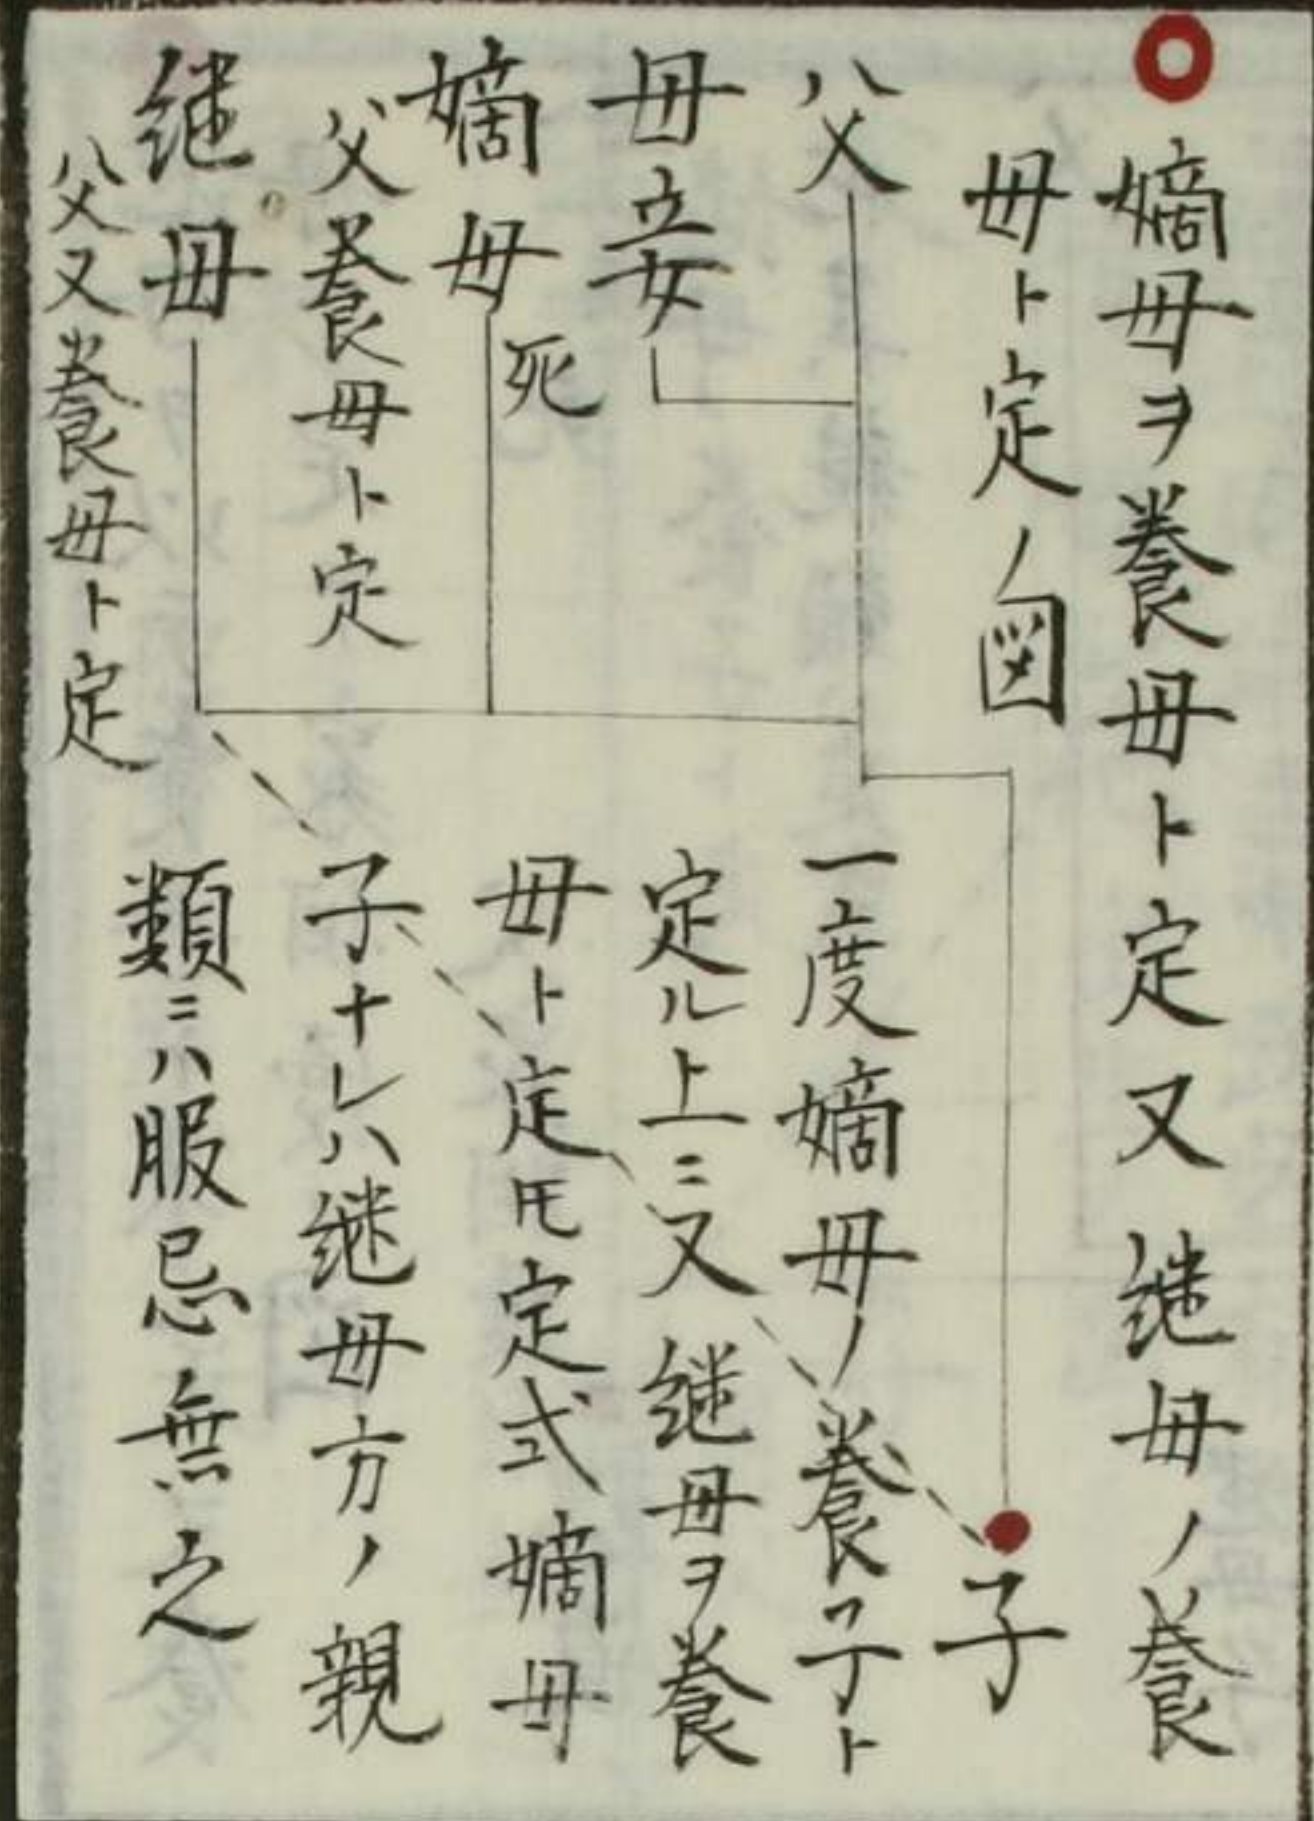 嫡母ヲ養母ト定又継母ノ養
母ト定ノ図
父
母妾
嫡母死
父養母ト定
継母
父又養母ト定
子
一度嫡母ノ養子ト
定ル上ニ又継母ヲ養
母ト定𪜈定式嫡母
子ナレハ継母方ノ親
類ニハ服忌無之